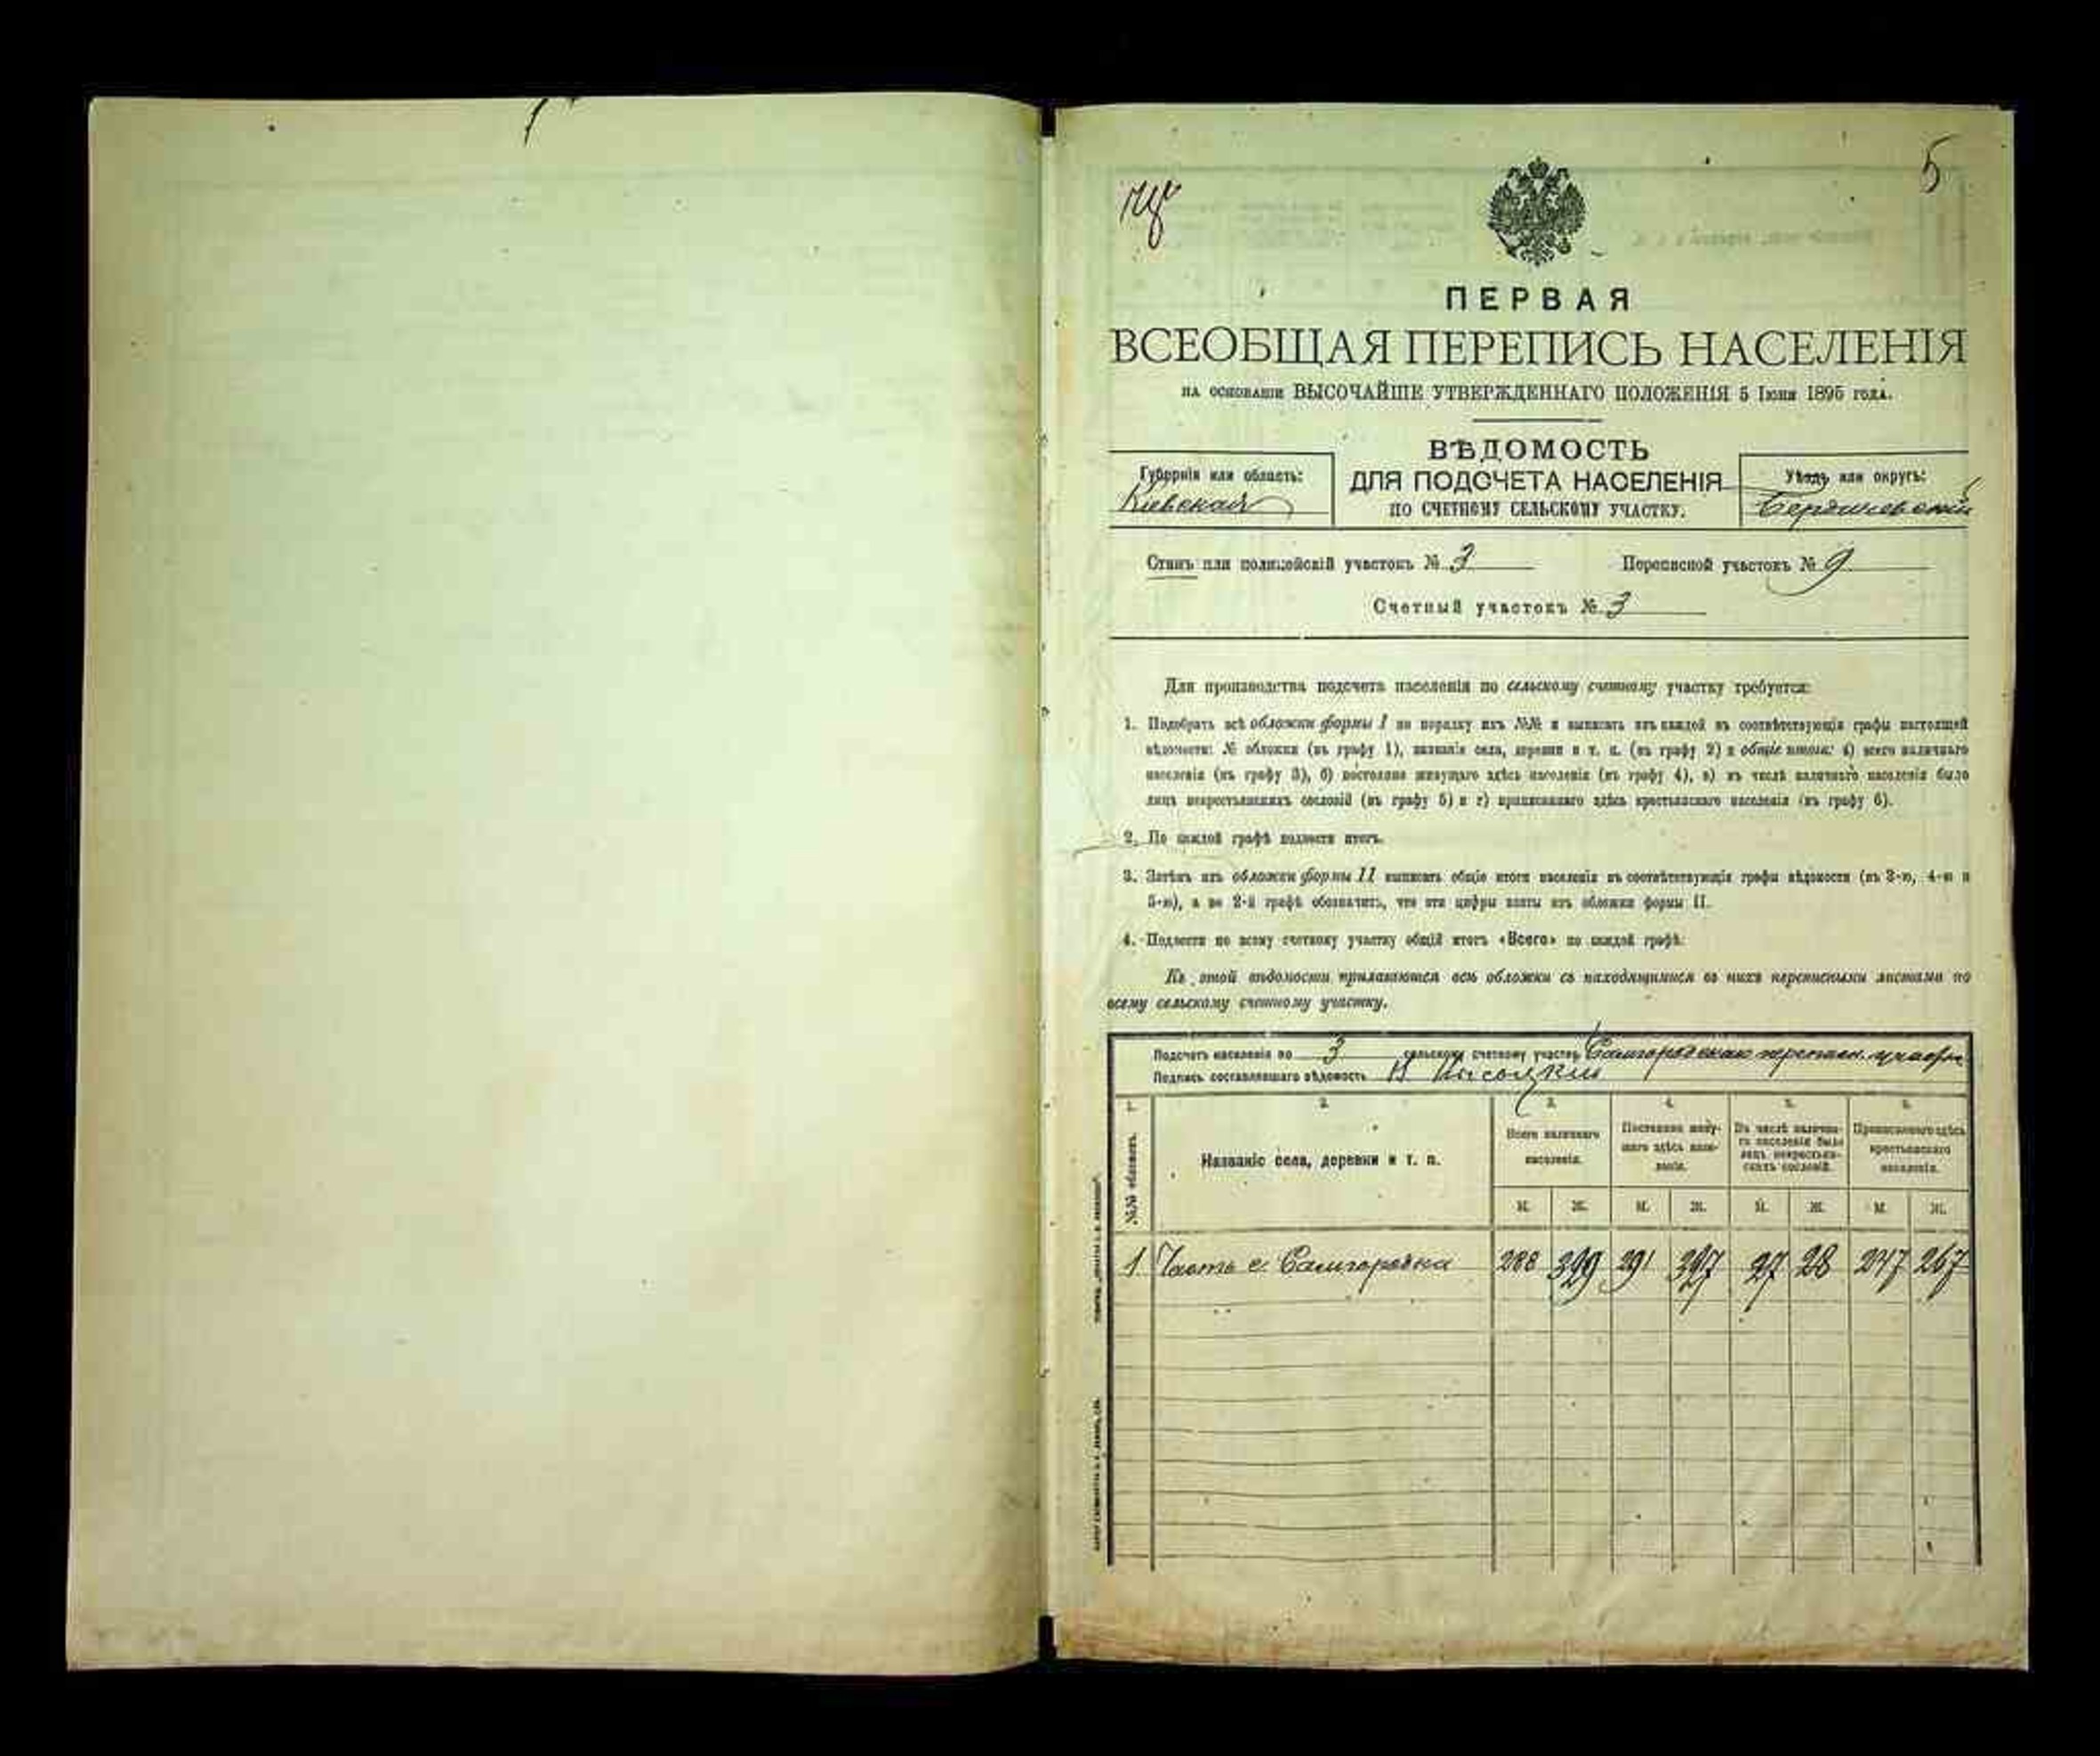 5
ПЕРВАЯ
ВСЕОБЩАЯ ПЕРЕПИСЬ НАСЕЛЕНІЯ
НА ОСНОВАНІИ ВЫСОЧАЙШЕ УТВЕРЖДЕННАГО ПОЛОЖЕНІЯ 5 Іюня 1895 года.
ВѢДОМОСТЬ
ДЛЯ ПОДСЧЕТА НАСЕЛЕНІЯ
ПО СЧЕТНОМУ СЕЛЬСКОМУ УЧАСТКУ.
Губернія или область:
Кіевская
Уѣздъ или округъ:
Бердичевскій
Станъ или полицейскій участокъ № 3
Переписной участокъ № 9
Счетный участокъ № 3
Для производства подсчета населенія по сельскому счетному участку требуется:
1. Подобрать всѣ обложки формы I по порядку ихъ №№ и выписать изъ каждой въ соотвѣтствующія графы настоящей
вѣдомости: № обложки (въ графу 1), названія села, деревни и т. п. (въ графу 2) и общіе итоги: а) всего наличнаго
населенія (въ графу 3), б) постоянно живущаго здѣсь населенія (въ графу 4), в) въ числѣ наличнаго населенія было
лицъ некрестьянскихъ сословій (въ графу 5) и г) приписаннаго здѣсь крестьянскаго населенія (въ графу 6).
2. По каждой графѣ подвести итогъ.
3. Затѣмъ изъ обложки формы II выписать общіе итоги населенія въ соотвѣтствующія графы вѣдомости (въ 3-ю, 4-ю и
5-ю), а во 2-й графѣ обозначить, что эти цифры взяты изъ обложки формы II.
4. Подвести по всему счетному участку общій итогъ «Всего» по каждой графѣ.
Къ этой вѣдомости прилагаются всѣ обложки съ находящимися въ нихъ переписными листами по
всему сельскому счетному участку.
Подсчетъ населенія по 3 сельскому счетному участку Самгородскаго переписн. участка
Подпись составлявшаго вѣдомость
1. 2. 3. 4. 5. 6.
№№ обложекъ.
Названіе села, деревни и т. п.
Всего наличнаго населенія.
Постоянно живущаго здѣсь населенія.
Въ числѣ наличнаго населенія было лицъ некрестьянскихъ сословій.
Приписаннаго здѣсь крестьянскаго населенія.
М. Ж. М. Ж. М. Ж. М. Ж.
1 Часть с. Самгородка 288 329 291 327 27 28 247 267